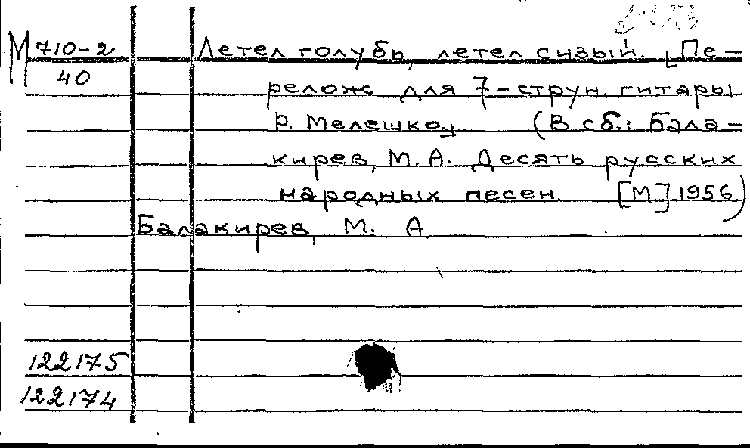 М 710-2
40
Летел голубь, летел сизый. [Пе-
релож. для 7-струн. гитары
Р. Мелешко]. (В сб.: Бала-
кирев, М. А. Десять русских
народных песен [М.] 1956)
Балакирев, М. А.
122175
122174